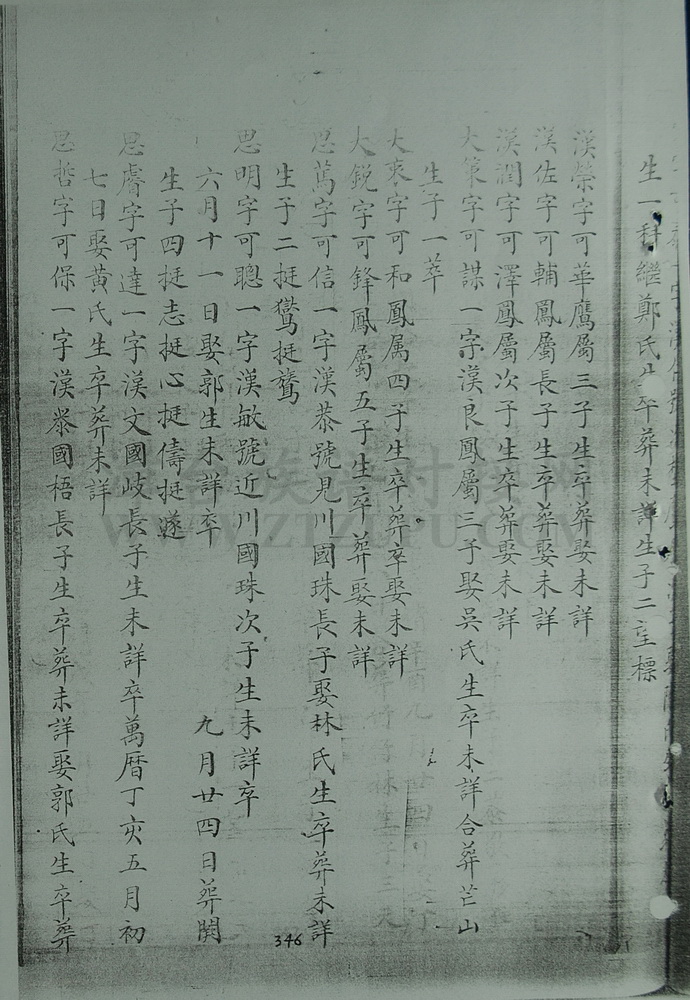 生一科繼鄭氏生卒葬未詳生子二 標
漢榮字可華鷹屬三子生卒葬娶未詳
漢佐字可輔鳳屬長子生卒葬娶未詳
漢潤字可澤鳳屬次子生卒葬娶未詳
大策字可謀一字漢良鳳屬三子娶吳氏生卒未詳合葬芒山
生子一萃
大衷字可和鳳属四子生卒葬卒娶未詳
大銳字可鋒鳳屬五子生卒葬娶未詳
思篤字可信一字漢恭號見川國珠長子娶林氏生卒葬未詳
生子二挺鸞挺鶩
思明字可聰一字漢敏號近川國珠次子生未詳卒
六月十一日娶郭生未詳卒 九月廿四日葬関
生子四挺志挺心挺儔挺遂
思睿字可達一字漢文國岐長子生未詳卒萬曆丁亥五月初
七日娶黄氏生卒葬未詳
思哲字可保一字漢 國梧長子生卒葬未詳娶郭氏生卒葬
346
WWW.ZTZUPU.COM